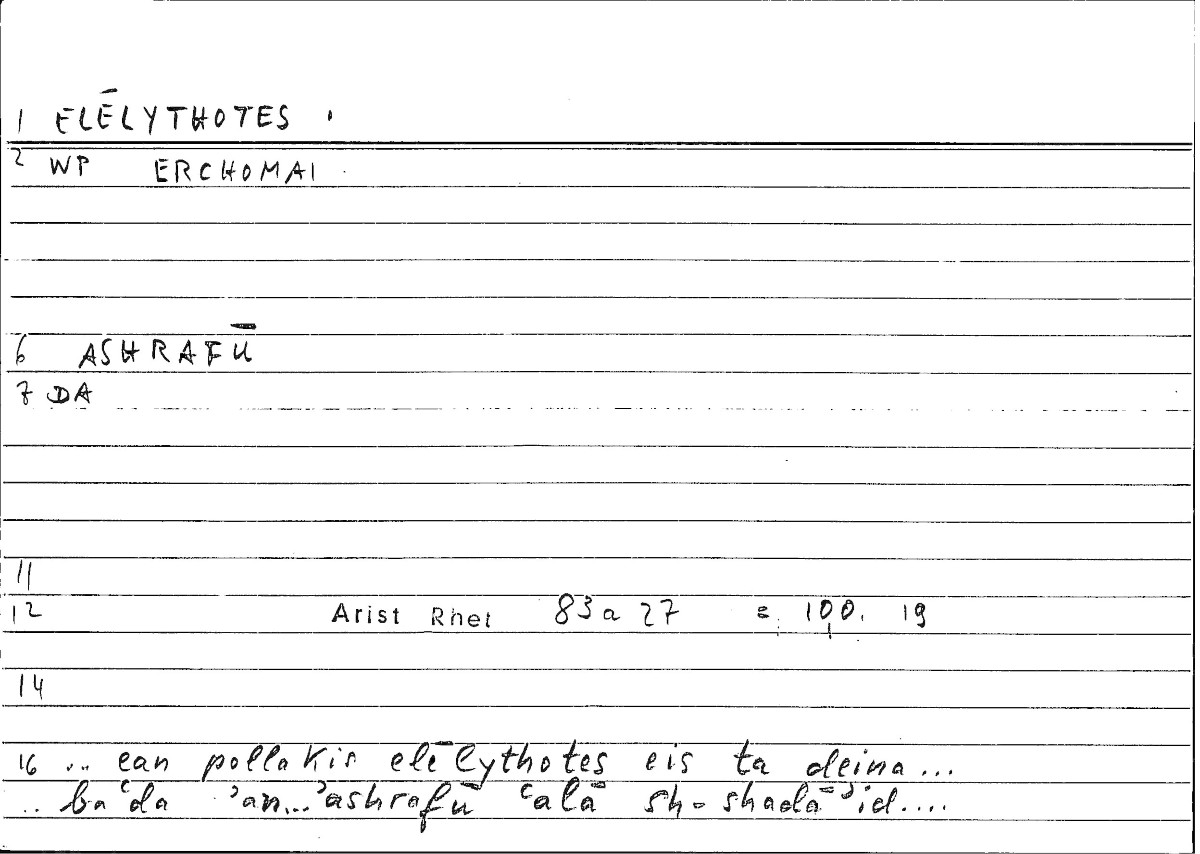 1 ELĒLYTHOTES .
2 WP ERCHOMAI
6 ASHRAFŪ
7 DA
11
12 Arist Rhet 83a27 = 100, 19
14
16 .. ean pollakis elēlythotes eis ta deina...
.. baʿda ʾan...ʾashrafū ʿalā sh-shadāʾid....